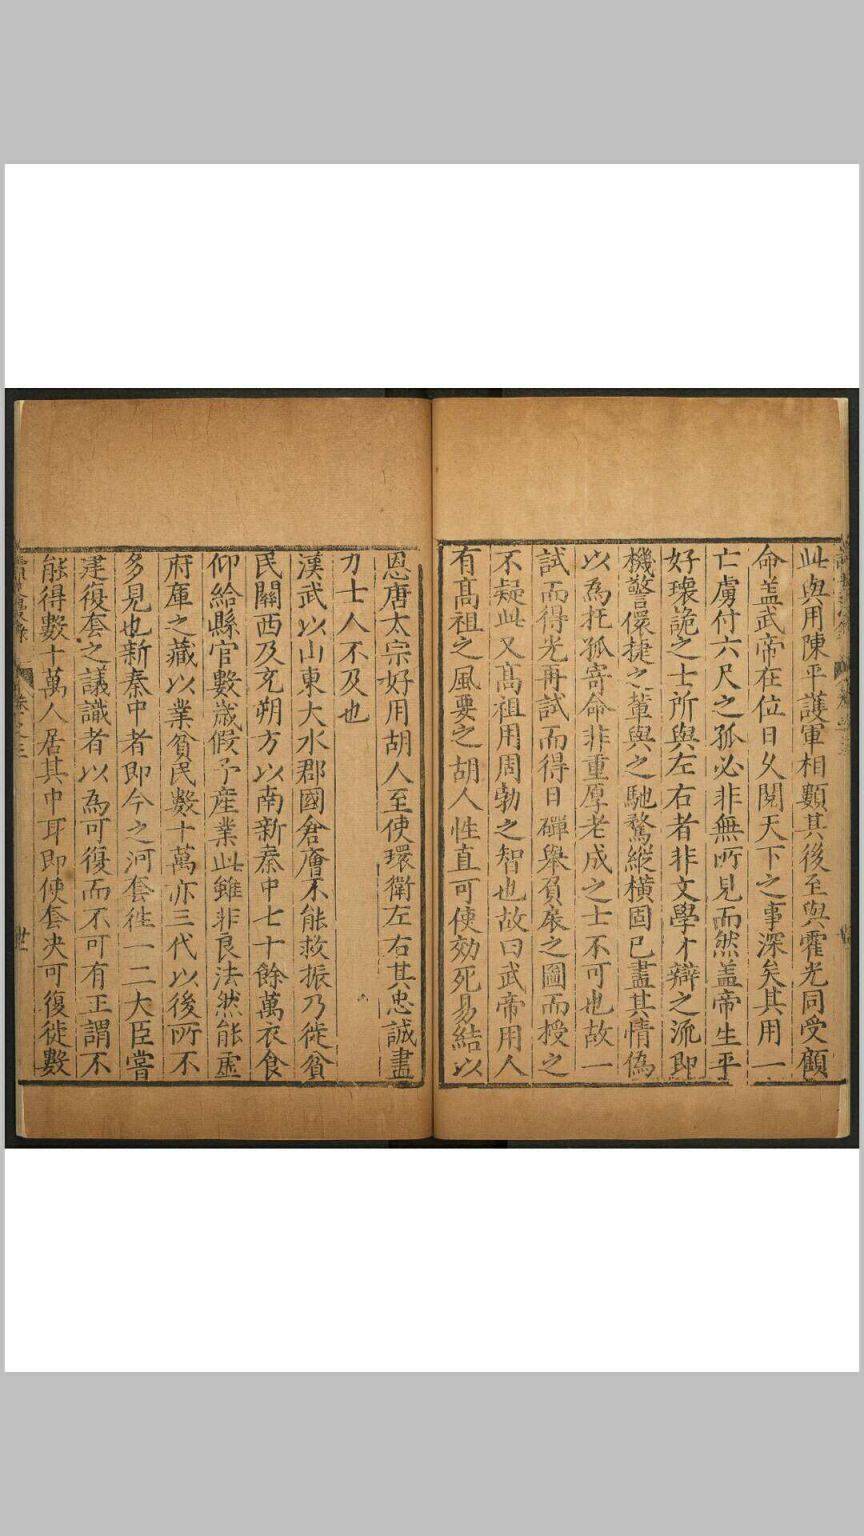 此與用陳平護軍相類其後至與霍光同受顧
命盖武帝在位日久閱天下之事深矣其用一
亡虜付六尺之孤必非無所見而然盖帝生平
好瓌詭之士所與左右者非文學才辯之流即
機警儇捷之輩與之馳騖縱橫固已盡其情偽
以為托孤寄命非重厚老成之士不可也故一
試而得光再試而得日磾舉負扆之圖而授之
不疑此又髙祖用周勃之智也故曰武帝用人
有髙祖之風要之胡人性直可使効死易結以
恩唐太宗好用胡人至使環衛左右其忠誠盡
力士人不及也
漢武以山東大水郡國倉廥不能救振乃徙貧
民關西及充朔方以南新秦中七十餘萬衣食
仰給縣官數歲假予産業此雖非良法然能虛
府庫之藏以業貧民數十萬亦三代以後所不
多見也新秦中者即今之河套徃一二大臣嘗
建復套之議識者以為可復而不可有正謂不
能得數十萬人居其中耳即使套决可復徙數
卷之三